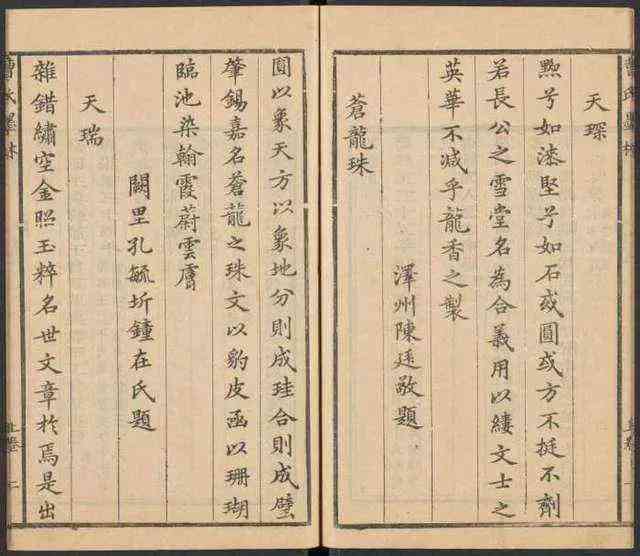 曹氏墨林
天琛
黝兮如漆堅兮如石或圓或方不挺不劑
若長公之雪堂名為合義用以縷文士之
英華不减乎龍香之製
澤州陳廷敬題
蒼龍珠
圓以象天方以象地分則成珪合則成璧
肇錫嘉名蒼龍之珠文以豹皮函以珊瑚
臨池染翰霞蔚雲膚
闕里孔毓圻鐘在氏題
天瑞
雜錯繡空金照玉粹名世文章於焉是出
曹氏墨林